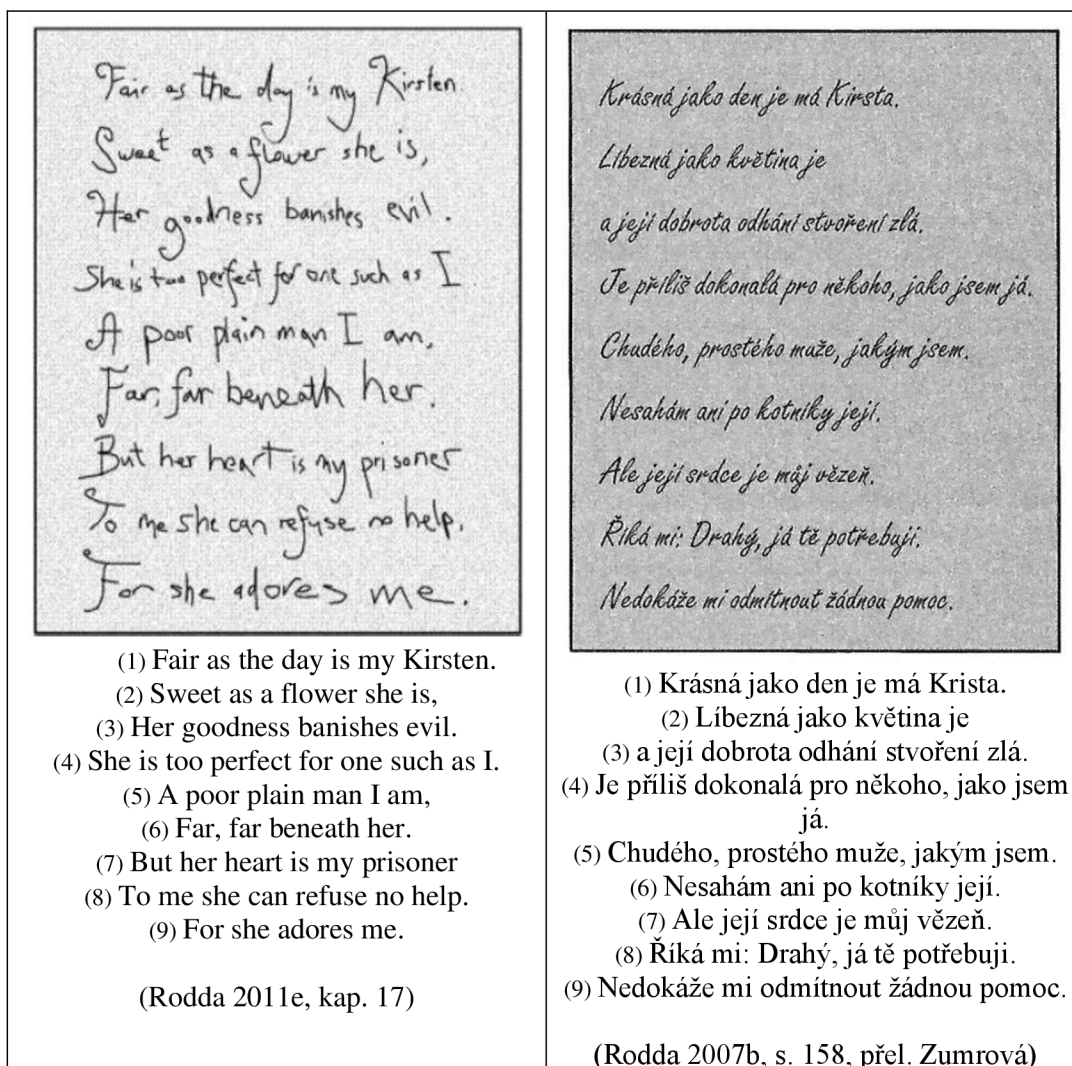 Fair as the day is my Kirsten.
Sweet as a flower she is,
Her goodness banishes evil.
She is too perfect for one such as I
A poor plain man I am,
Far, far beneath her.
But her heart is my prisoner
To me she can refuse no help.
For she adores me.
(1) Fair as the day is my Kirsten.
(2) Sweet as a flower she is,
(3) Her goodness banishes evil.
(4) She is too perfect for one such as I.
(5) A poor plain man I am,
(6) Far, far beneath her.
(7) But her heart is my prisoner
(8) To me she can refuse no help.
(9) For she adores me.
(Rodda 2011e, kap. 17)
Krásná jako den je má Kirsta.
Líbezná jako květina je
a její dobrota odhání stvoření zlá.
Je příliš dokonalá pro někoho, jako jsem já.
Chudého, prostého muže, jakým jsem.
Nesahám ani po kotníky její.
Ale její srdce je můj vězeň.
Říká mi: Drahý, já tě potřebuji.
Nedokáže mi odmítnout žádnou pomoc.
(1) Krásná jako den je má Krista.
(2) Líbezná jako květina je
(3) a její dobrota odhání stvoření zlá.
(4) Je příliš dokonalá pro někoho, jako jsem
já.
(5) Chudého, prostého muže, jakým jsem.
(6) Nesahám ani po kotníky její.
(7) Ale její srdce je můj vězeň.
(8) Říká mi: Drahý, já tě potřebuji.
(9) Nedokáže mi odmítnout žádnou pomoc.
(Rodda 2007b, s. 158, přel. Zumrová)